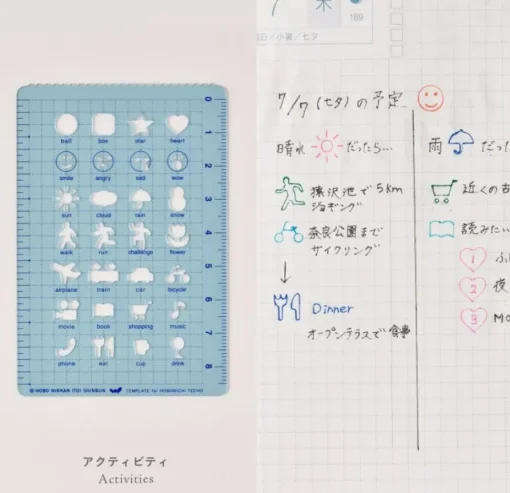 0
ball box star heart
1
smile angry sad wow
2
sun cloud rain snow
3
walk run challenge flower
4
airplane train car bicycle
5
movie book shopping music
6
phone eat cup drink
7
8
© HOBO NIKKAN ITOI SHINBUN TEMPLATE for HOBONICHI TECHO
アクティビティ
Activities
木
189
/小暑/七夕
7/7(七夕)の予定
晴れ だったら…
猿沢池で5km
ジョギング
奈良公園まで
サイクリング
Dinner
オープンテラスで食事
雨 だっ
近くの古
読みたい
1 ふ
2 夜
3 Mo